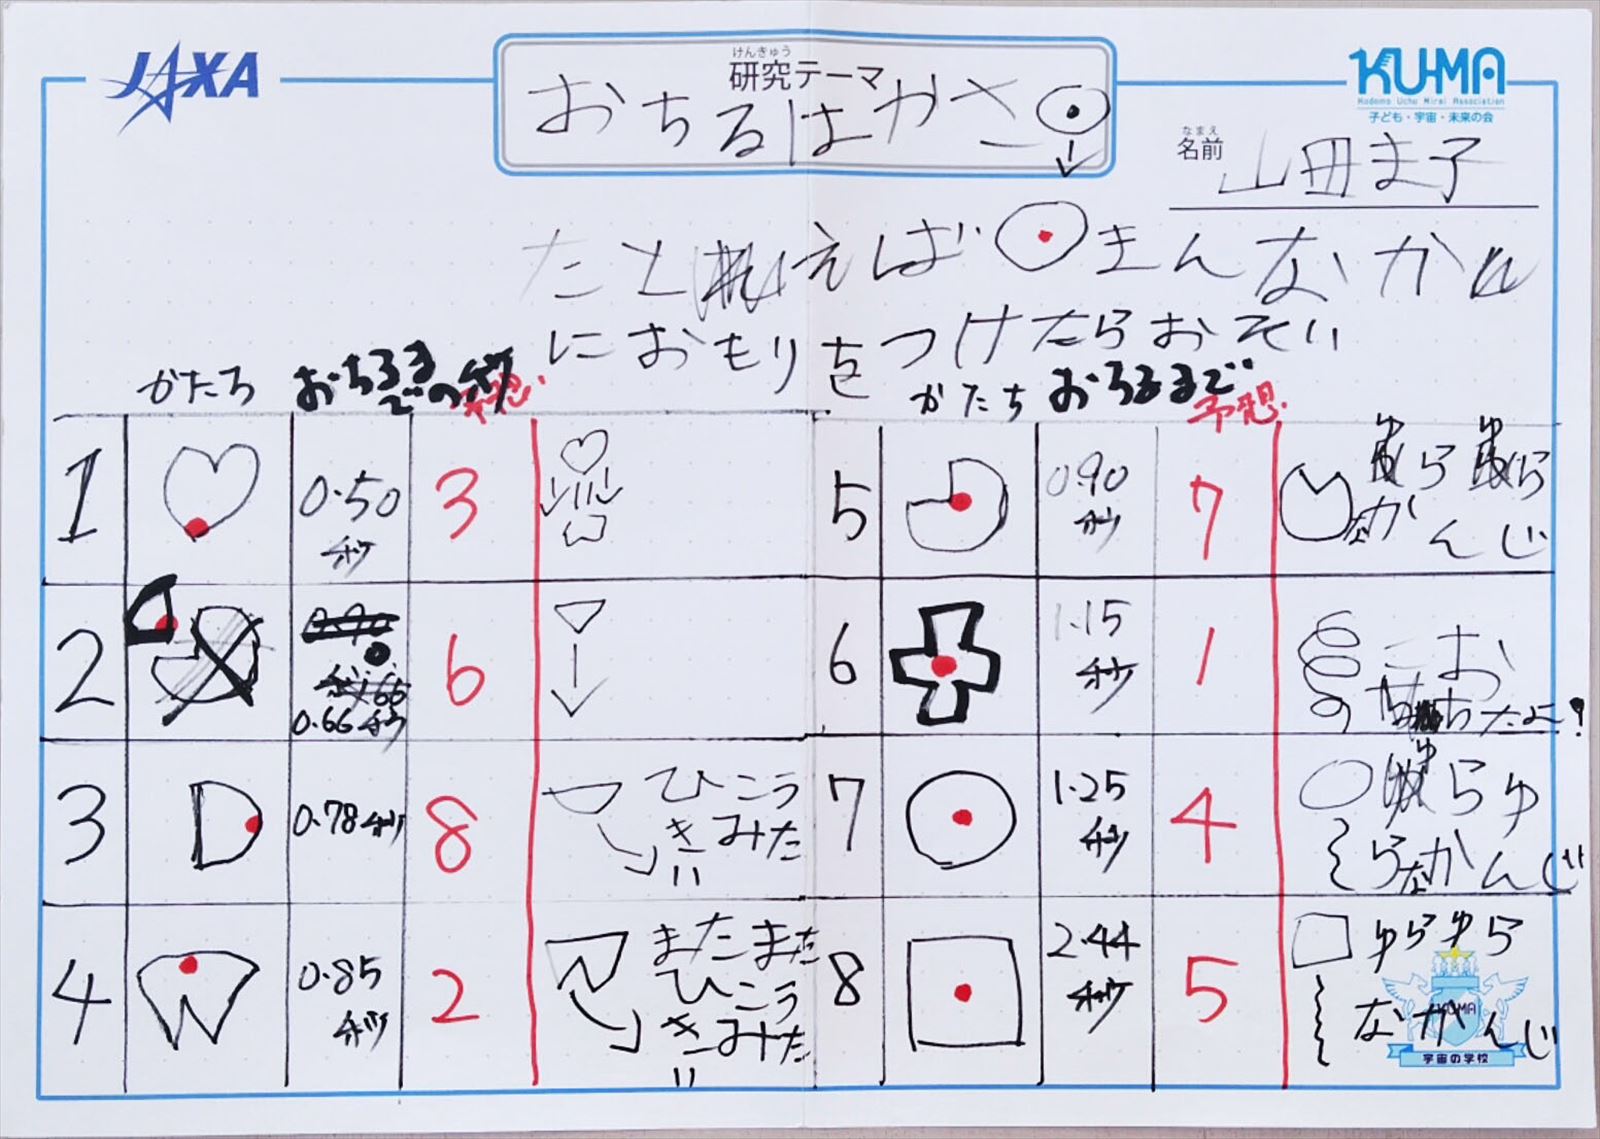 JAXA
けんきゅう
研究テーマ
おちるはやさ
KU-MA
Kodomo Uchu Mirai Association
子ども・宇宙・未来の会
なまえ
名前
山田ま子
たとえば まんなか
におもりをつけたらおそい
かたち おちるまでの秒 予想
かたち おちるまで 予想
1 0.50秒 3
2 0.66秒 6
3 0.78秒 8 ひこうきみたいい
4 0.85秒 2 またまたひこうきみたいい
5 0.90秒 7 ゆらゆらなかんじ
6 1.15秒 1 こおちたよ?
7 1.25秒 4 ゆらゆらなかんじ
8 2.44秒 5 ゆらゆらなかんじ
KUMA
宇宙の学校